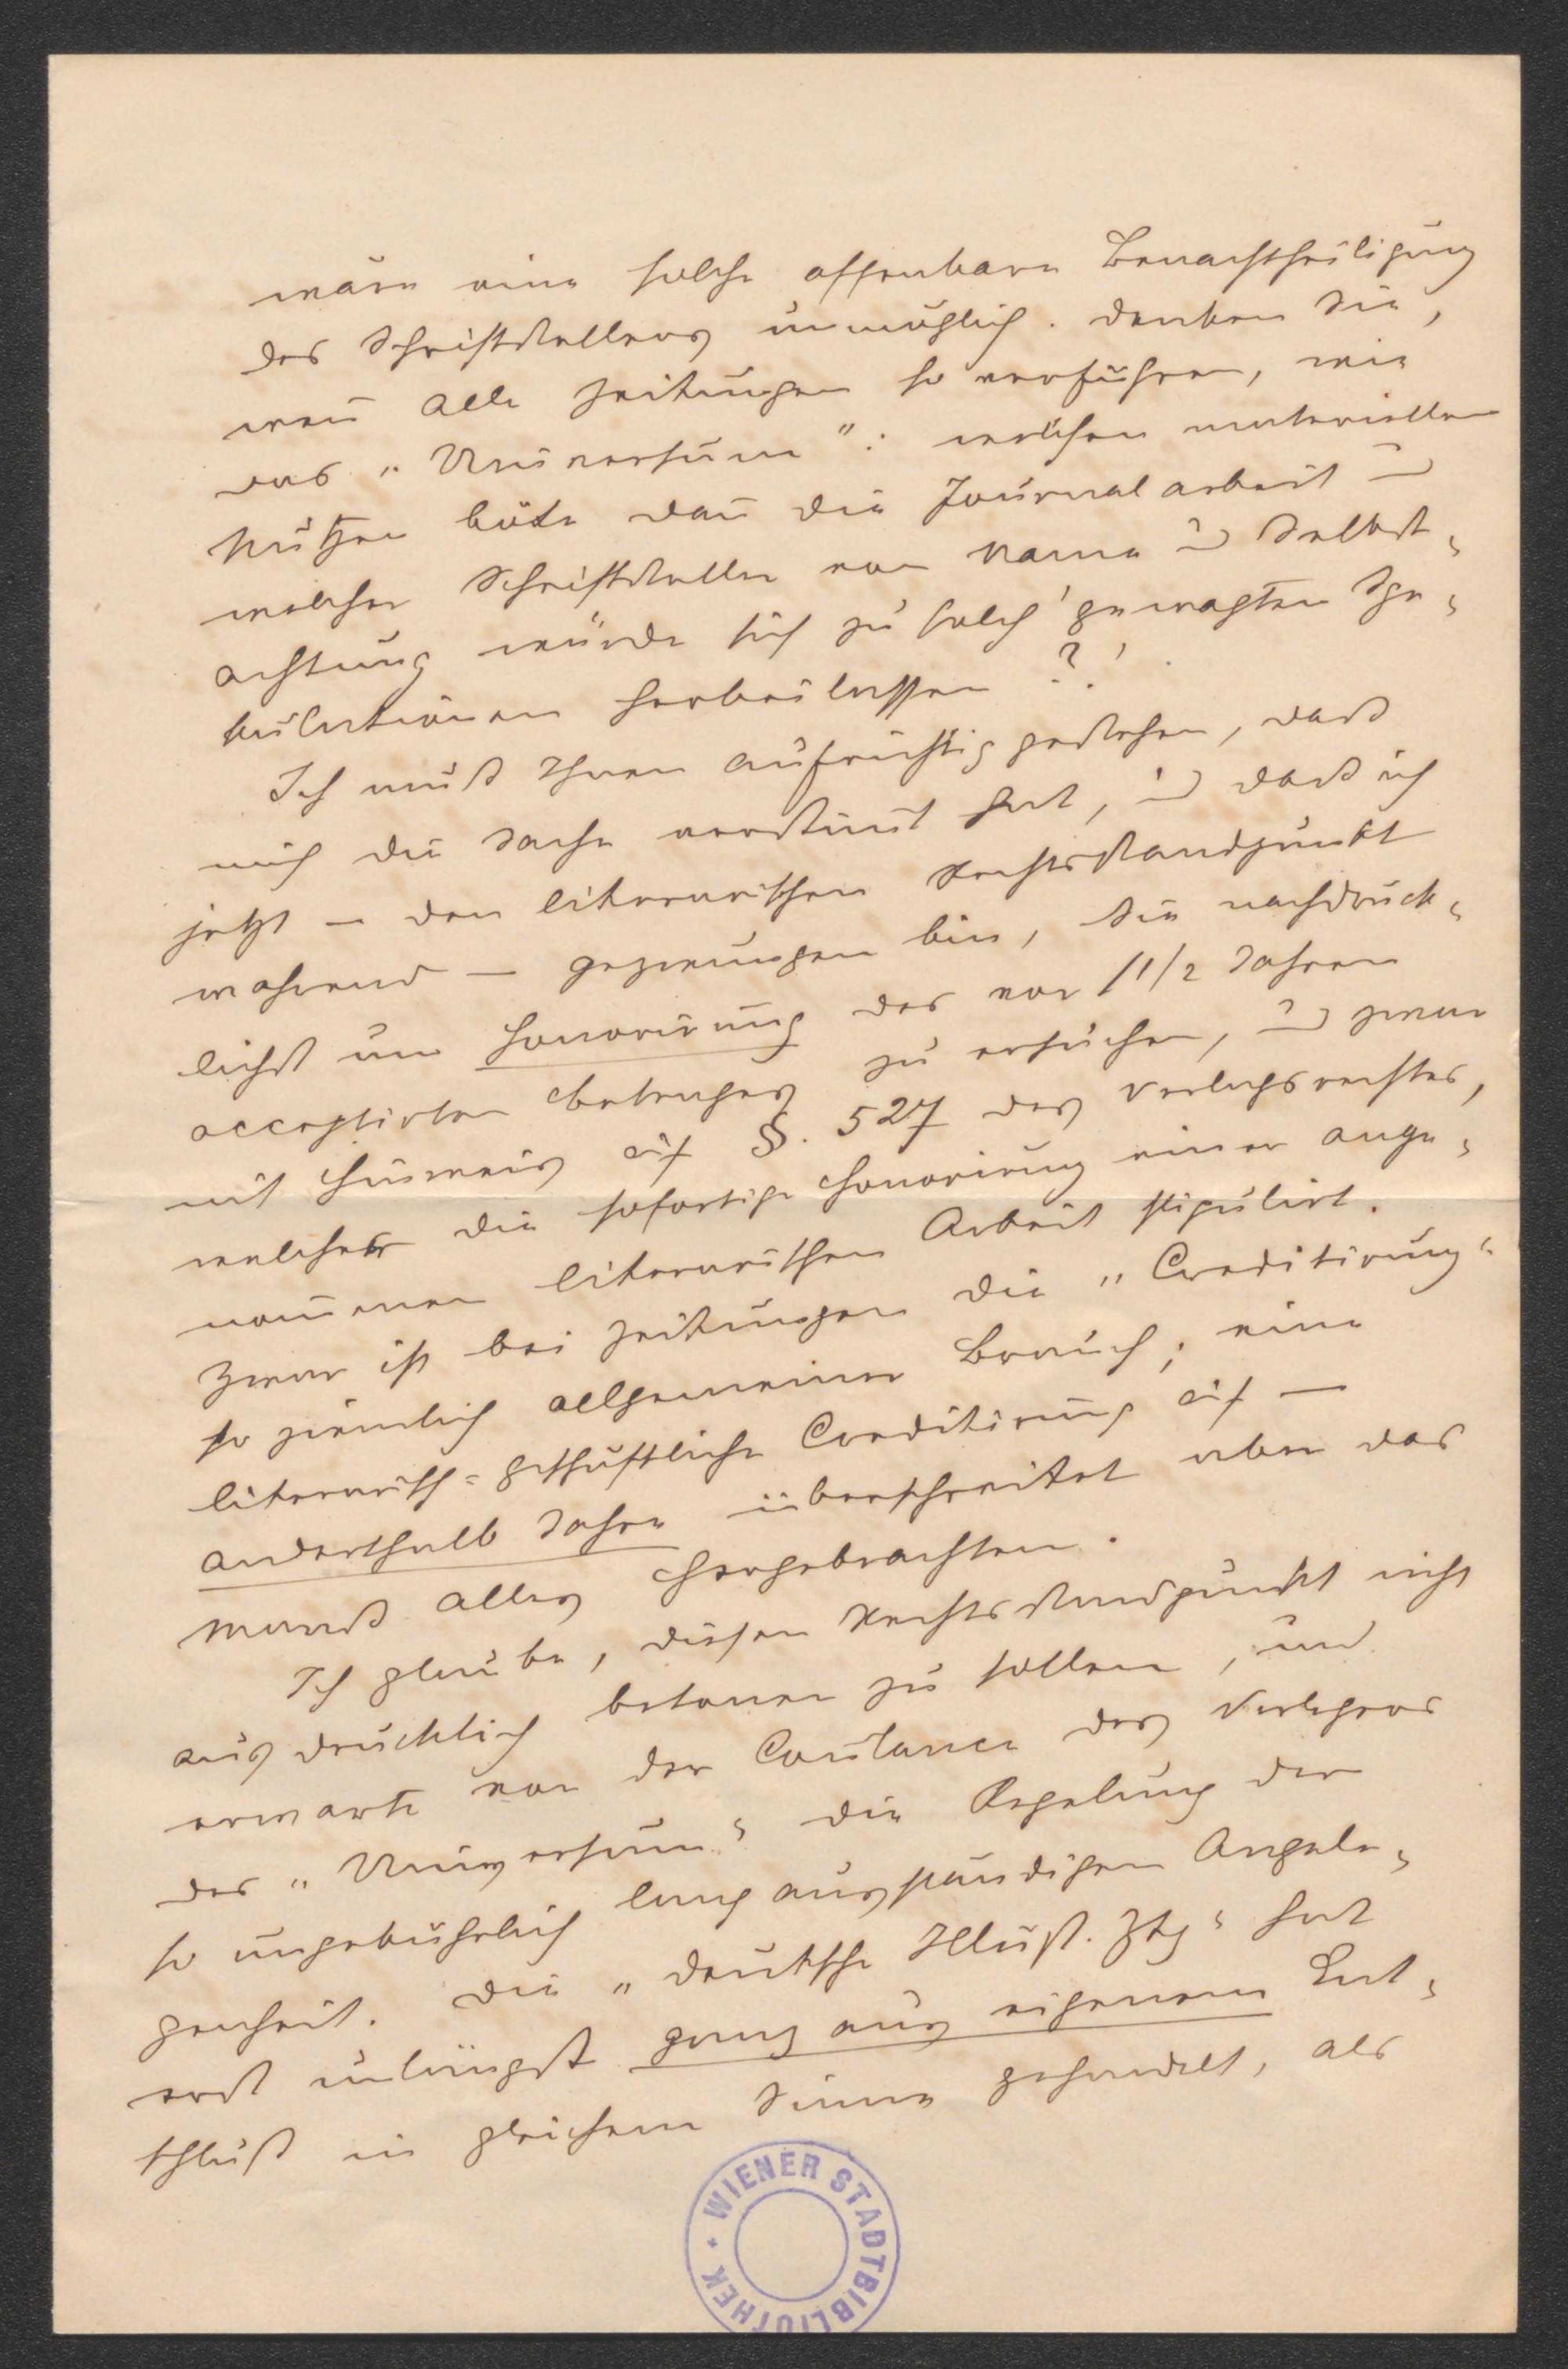 wäre eine solche offenbare Benachtheiligung
des Schriftstellers unmöglich. Denken Sie,
wen̄ alle Zeitungen so verführen, wie
das „Universum“: welchen materiellen
Nutzen böte dan̄ die Journalarbeit u
welcher Schriftsteller von Name u Selbst-
achtung würde sich zu solch' gewagten Spe-
kulationen herbeilassen?!
Ich muß Ihnen aufrichtig gestehen, daß
mich die Sache verstim̄t hat, u daß ich
jetzt – den literarischen Rechtsstandpunkt
wahrend – gezwungen bin, Sie nachdrück-
lichst um Honorirung des vor 1 1/2 Jahren
acceptirten Betrages zu ersuchen, u zwar
mit Hinweis auf §. 527 des Verlagsrechtes,
welcher die sofortige Honorirung einer ange-
nom̄enen literarischen Arbeit stipulirt.
Zwar ist bei Zeitungen die „Creditirung“
so ziemlich allgemeiner Brauch; eine
literarisch-geschäftliche Creditirung auf –
anderthalb Jahre überschreitet aber das
Maaß alles Hergebrachten.
Ich glaube, diesen Rechtsstandpunkt nicht
ausdrücklich betonen zu sollen, und
erwarte von der Coulance des Verlegers
des „Universum“ die Regelung der
so ungebührlich lang ausständigen Angele-
genheit. Die „Deutsche Illust. Ztg“ hat
erst unlängst ganz aus eigenem Ent-
schluß in gleichem Sinne gehandelt, als
WIENER STADTBIBLIOTHEK